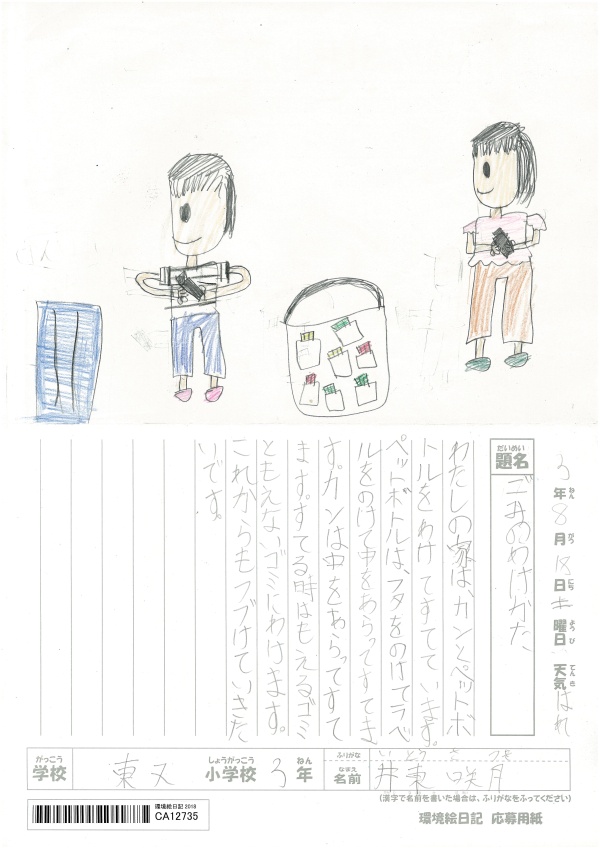 3年8月18日曜日天気はれ
ねんがつにちようびてんき
だいめい
題名
ごみのわけかた、
わたしの家は、カンとペットボ
トルをわけてすてています。
ペットボトルは、フタをのけてラベ
ルをのけて中をあらってすてま
す。カンは中をあらってすて
ます。すてる時はもえるゴミ
ともえないゴミにわけます。
これからもつづけていきた
いです。
がっこう しょうがっこう ねん ふりがな いとう さつき
学校 東又 小学校 3 年 なまえ 名前 井東 咲月
(漢字で名前を書いた場合は、ふりがなをふってください)
環境絵日記 2018
CA12735
環境絵日記 応募用紙